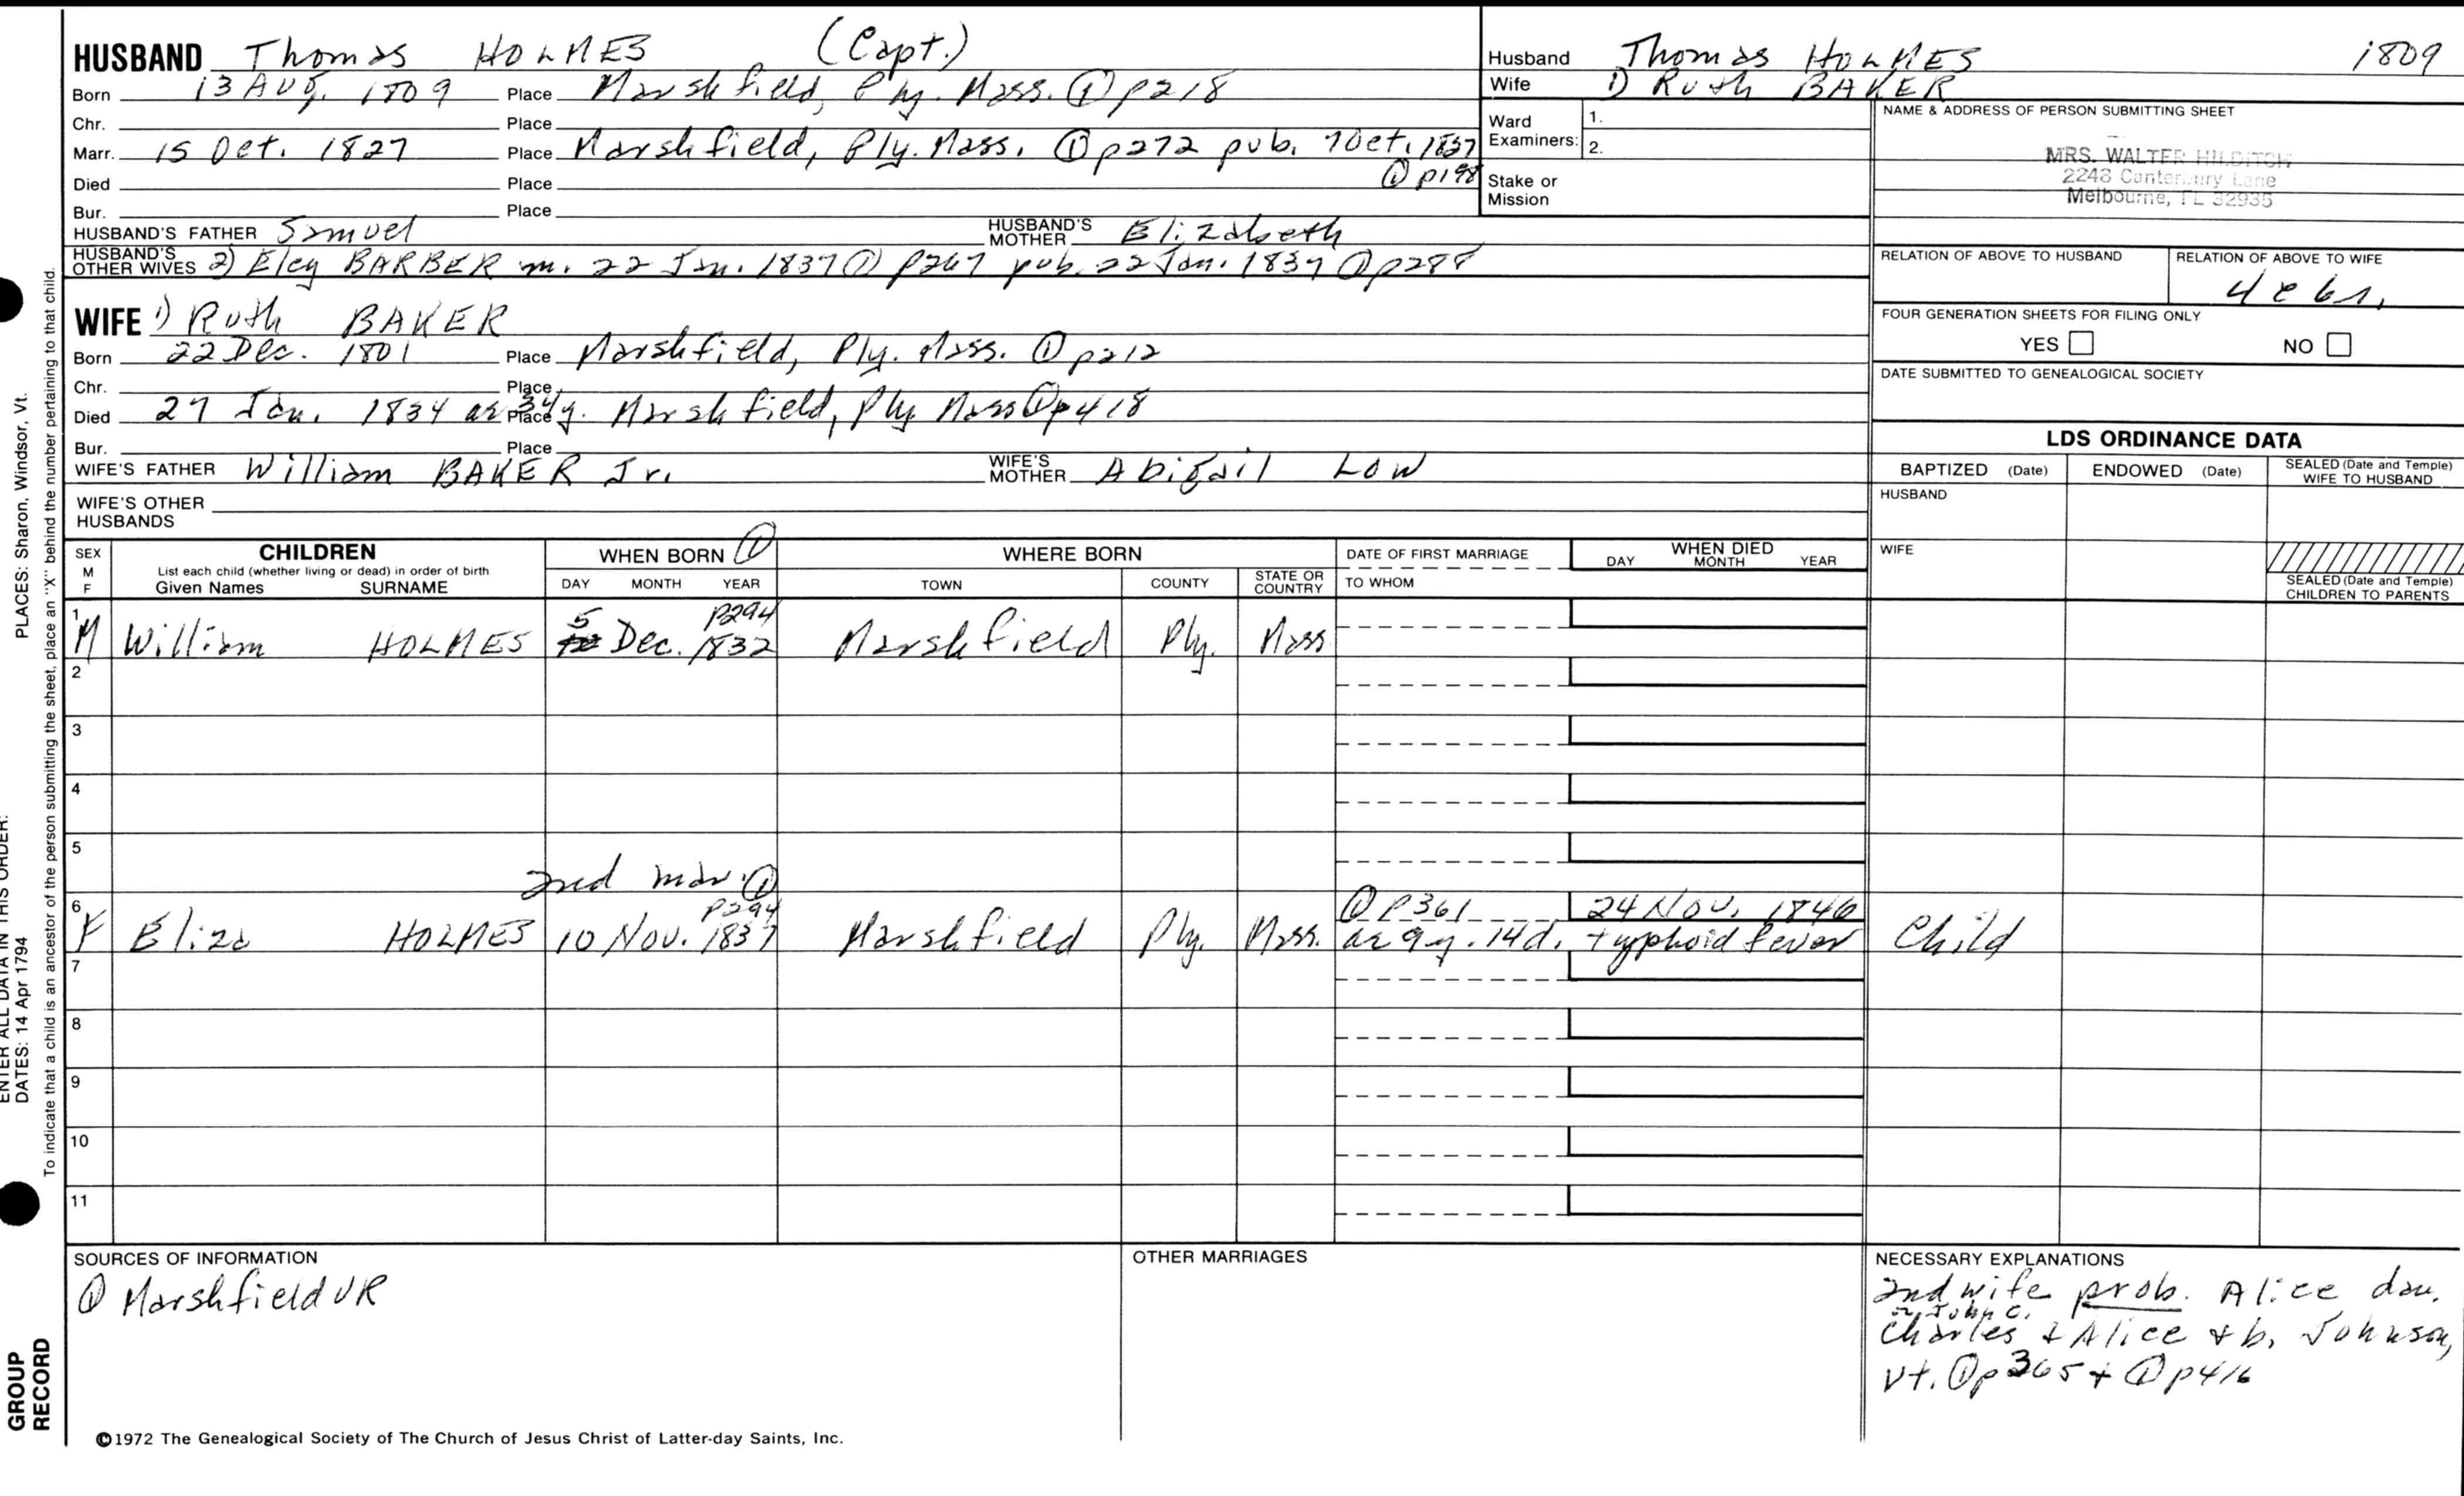 HUSBAND Thomas HOLMES (Capt.)
Born 13 Aug. 1809 Place Marshfield, Ply. Mass. ① p218
Chr. Place
Marr. 15 Oct. 1827 Place Marshfield, Ply. Mass. ① p272 pub. 7 Oct. 1837
Died Place ① p198
Bur. Place
HUSBAND'S FATHER Samuel HUSBAND'S MOTHER Elizabeth
HUSBAND'S OTHER WIVES 2) Elcy BARBER m. 22 Jan. 1837 ① p267 pub. 22 Jan. 1837 ① p288
WIFE 1) Ruth BAKER
Born 22 Dec. 1801 Place Marshfield, Ply. Mass. ① p212
Chr. Place
Died 27 Jan. 1834 ae 34y. Place Marshfield, Ply Mass ① p418
Bur. Place
WIFE'S FATHER William BAKER Jr. WIFE'S MOTHER Abigail LOW
WIFE'S OTHER HUSBANDS
Husband Thomas HOLMES 1809
Wife 1) Ruth BAKER
Ward Examiners: 1.
2.
Stake or Mission
NAME & ADDRESS OF PERSON SUBMITTING SHEET
MRS. WALTER HILDITCH
2248 Canterbury Lane
Melbourne, FL 32935
RELATION OF ABOVE TO HUSBAND RELATION OF ABOVE TO WIFE
FOUR GENERATION SHEETS FOR FILING ONLY
YES NO
DATE SUBMITTED TO GENEALOGICAL SOCIETY
LDS ORDINANCE DATA
BAPTIZED (Date) ENDOWED (Date) SEALED (Date and Temple) WIFE TO HUSBAND
HUSBAND
WIFE
SEALED (Date and Temple) CHILDREN TO PARENTS
SEX M F CHILDREN WHEN BORN ① WHERE BORN DATE OF FIRST MARRIAGE WHEN DIED
List each child (whether living or dead) in order of birth
Given Names SURNAME DAY MONTH YEAR TOWN COUNTY STATE OR COUNTRY TO WHOM DAY MONTH YEAR
1 M William HOLMES 5 Dec. 1832 p294 Marshfield Ply. Mass
2
3
4
5
2nd mar. ①
6 F Eliza HOLMES 10 Nov. 1837 p294 Marshfield Ply. Mass. ① p361 ae 9y. 14d. 24 Nov. 1846 typhoid fever Child
7
8
9
10
11
SOURCES OF INFORMATION
① Marshfield VR
OTHER MARRIAGES
NECESSARY EXPLANATIONS
2nd wife prob. Alice dau.
or John C.
Charles & Alice & b. Johnson,
Vt. ① p365 + ① p416
©1972 The Genealogical Society of The Church of Jesus Christ of Latter-day Saints, Inc.
PLACES: Sharon, Windsor, Vt.
To indicate that a child is an ancestor of the person submitting the sheet, place an "X" behind the number pertaining to that child.
ENTER ALL DATA IN THIS ORDER:
DATES: 14 Apr 1794
GROUP
RECORD